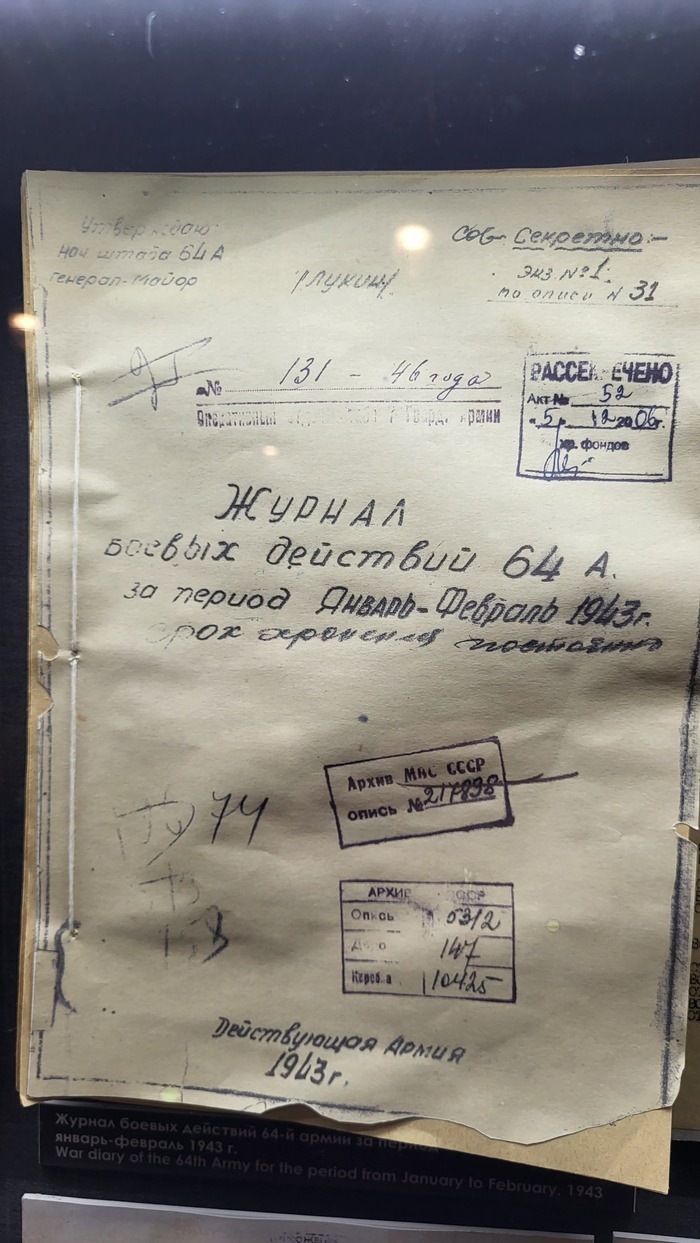 Утверждаю
нач штаба 64 А
генерал-майор
/Лукин/
Сов- Секретно:-
Экз. № 1.
по описи N 31
№ 131 - 46 года
Оперативный Гвард. Армии
РАССЕ ЕЧЕНО
Акт № 52
"5" 12 2006г.
хр. фондов
Журнал
боевых действий 64 А.
за период Январь-Февраль 1943г.
срок хранения постоянно
74
Архив МВС СССР
опись № 217898
АРХИВ СССР
Опись 0312
147
Короб.а 10425
Действующая Армия
1943г.
Журнал боевых действий 64-й армии за период
январь-февраль 1943 г.
War diary of the 64th Army for the period from January to February, 1943